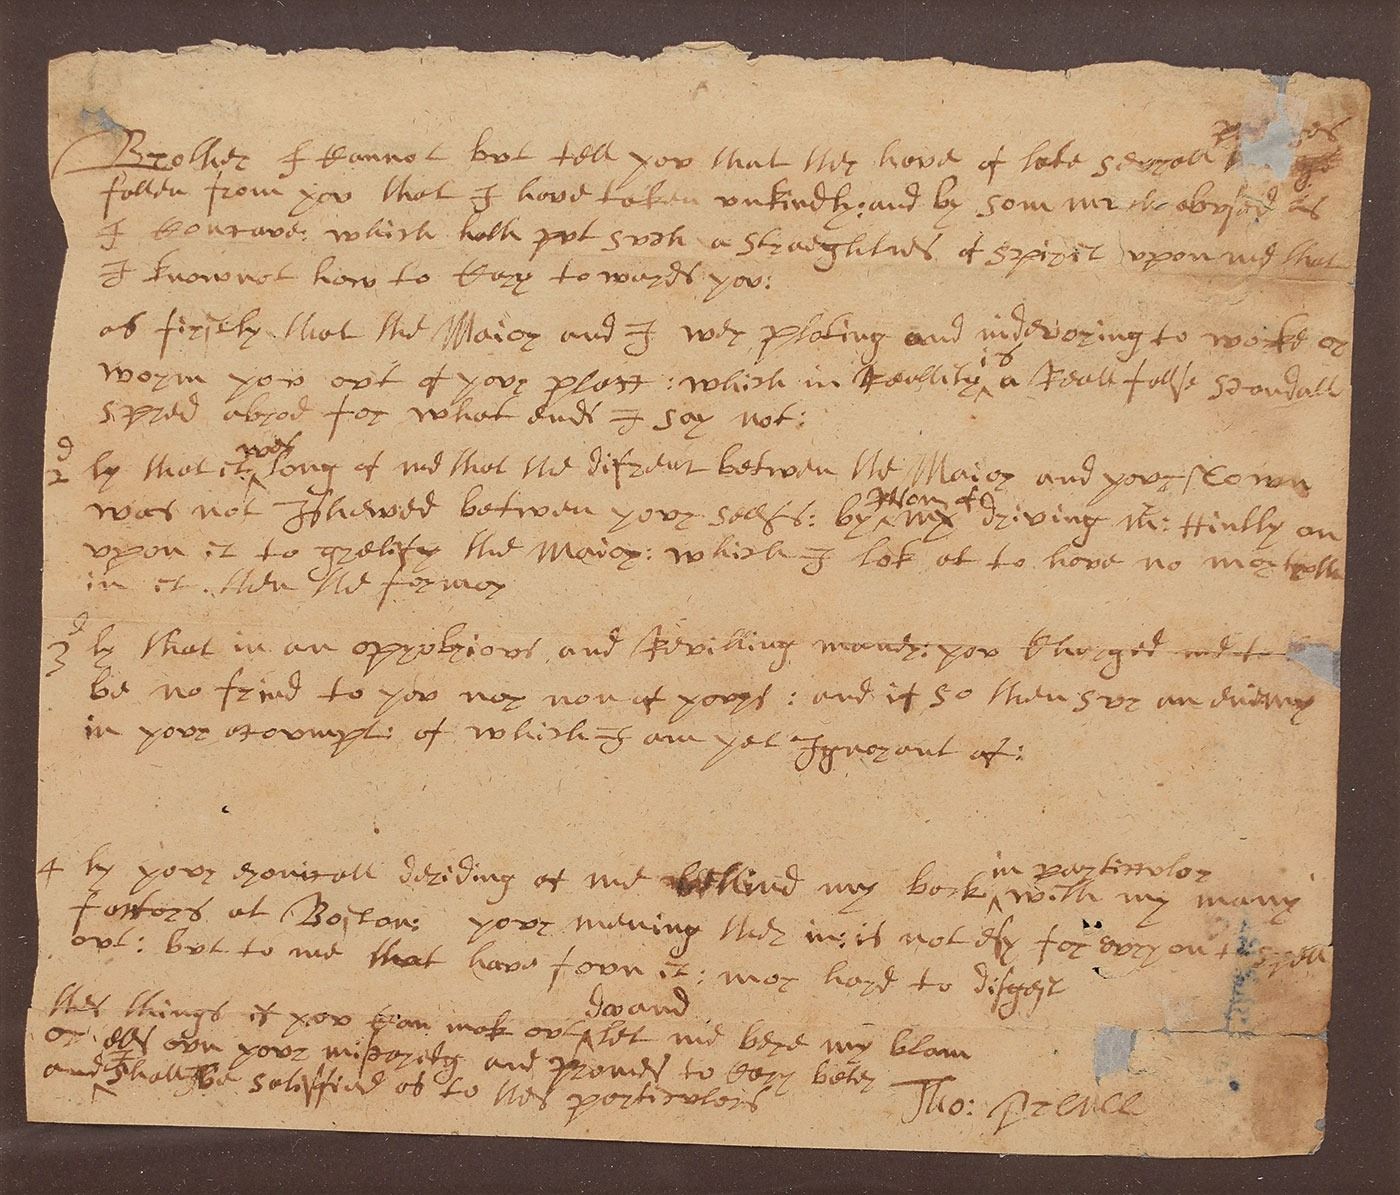 Brother I Cannot but tell you that ther have of late severall
fallen from you that I have taken unkindly: and by som much abused as
I Conceave: which hath put such a straeghtnes of spirit upon me that
I know not how to Cary towards you:
as firstly that the Maior and I wer ploting and indevoring to worke or
worm you out of your place: which in Reallity is a Reall false scandall
spred abrod for what ends I say not:
2d ly that it was long of me that the difrent betwen the Maior and your Town
was not Ishewed betwen your selfs: by reson of my driving Mr: Hinlly on
upon it to gratify the Maior: which I lok at to have no mor truth
in it then the formor
3d ly that in an opprobrious and Revilling maner: you Charged me to
be no frind to you nor non of yours: and if so then sur an enemy
in your acoumpt: of which I am yet Ignorant of:
4 ly your eronicall deriding of me behind my back in particulor with my many
factors at Boston: your mening ther in: is not esy for every on to spell
out: but to me that have foun it: mor hard to disgest
thes things if you Can mak out do and let me bere my blam
or els oun your miscarieg and promes to Cary beter
and I shall be satisfied as to thes particulors
Tho: Prence